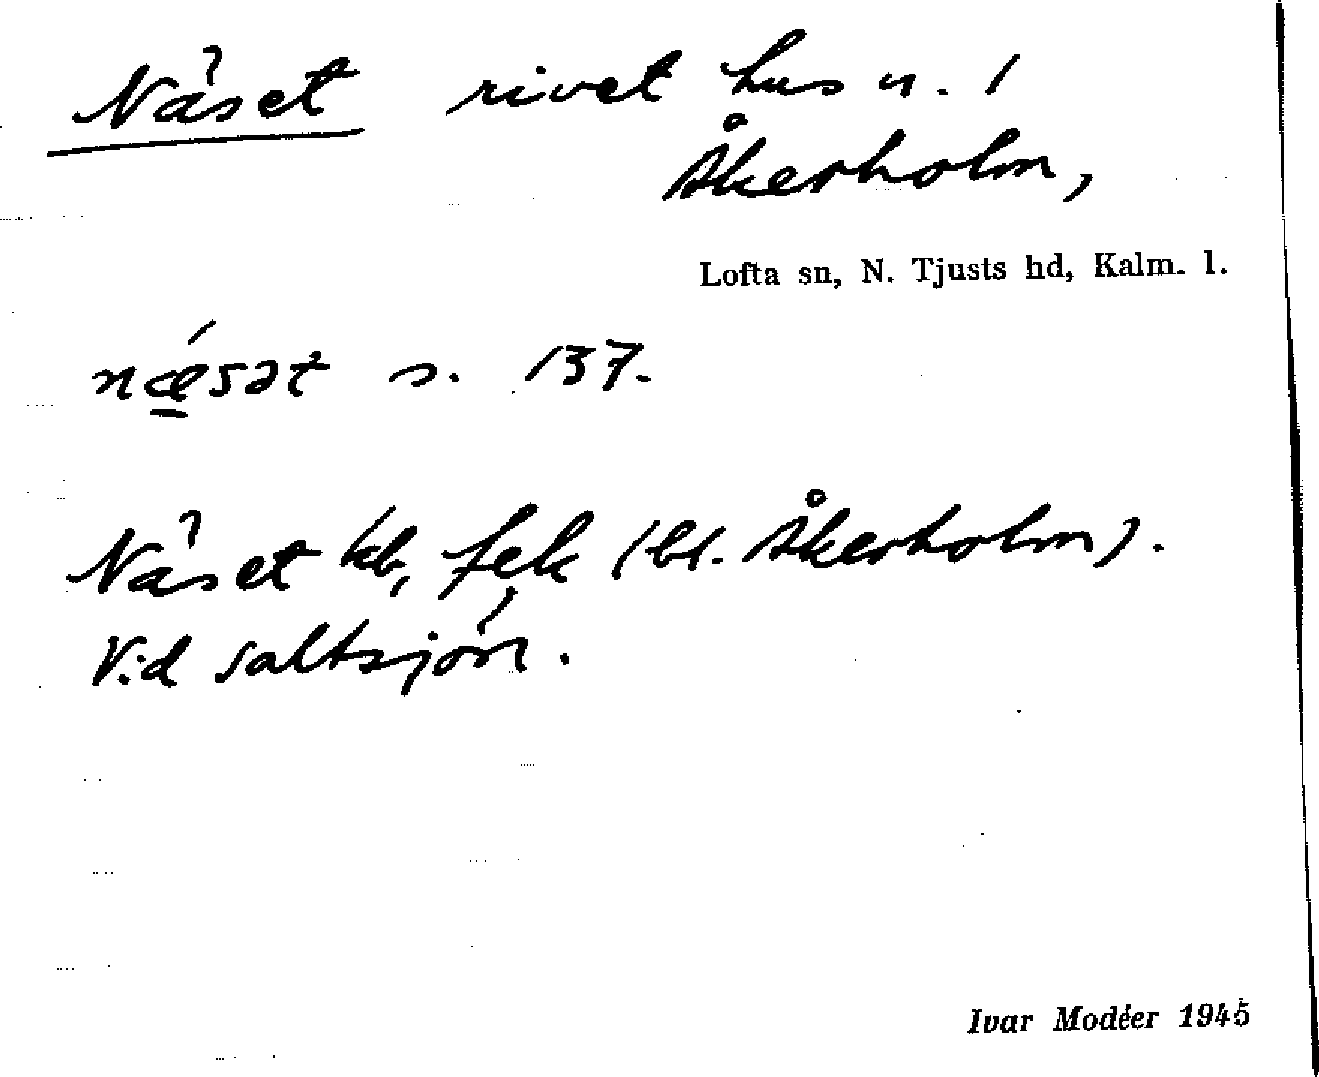 Näset rivet hus u. 1
Åkerholm,
Lofta sn, N. Tjusts hd, Kalm. l.
nǽ̱sət s. 137.
Näset kb, fek (bl. Åkerholm).
Vid saltsjön.
Ivar Modéer 1945